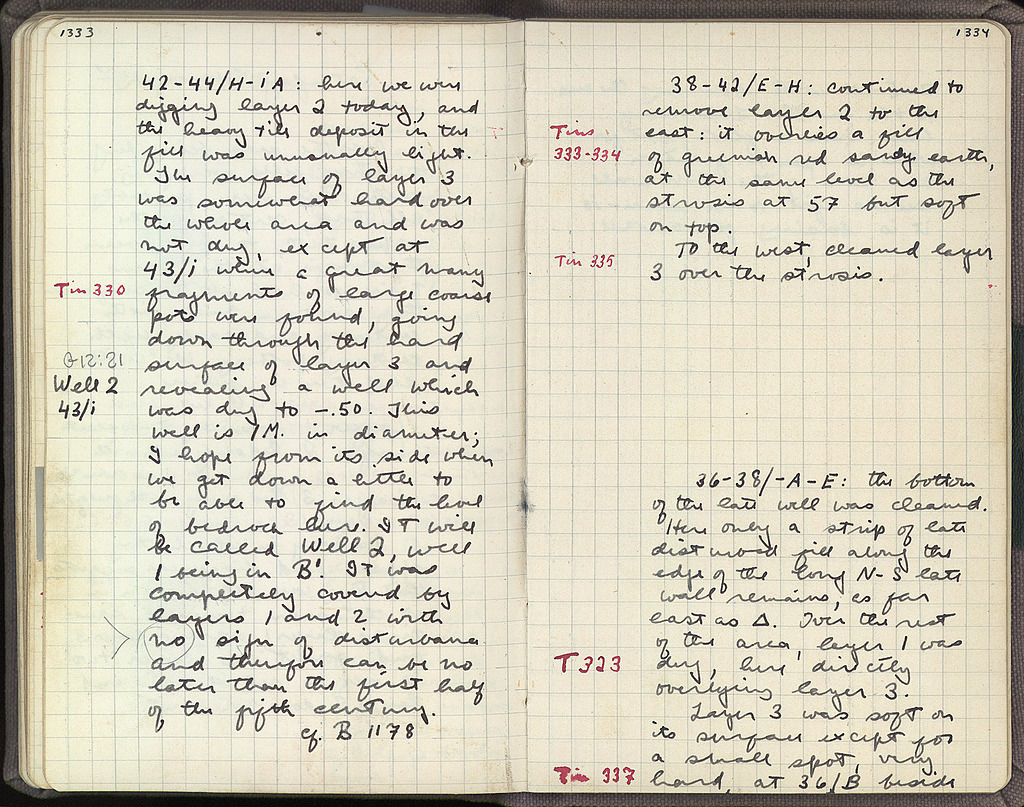 1333
42-44/H-iA: here we were
digging layer 2 today, and
the heavy tile deposit in the
fill was unusually light.
The surface of layer 3
was somewhat hard over
the whole area and was
not dug, except at
43/i where a great many
Tin 330 fragments of large coarse
pots were found, going
down through the hard
G12:21 surface of layer 3 and
Well 2 revealing a well which
43/i was dug to -.50. This
well is 1M. in diameter;
I hope from its side when
we get down a little to
be able to find the level
of bedrock here. IT will
be called Well 2, well
1 being in B'. IT was
completely covered by
layers 1 and 2 with
no sign of disturbance
and therefore can be no
later than the first half
of the fifth century.
cf. B 1178
1334
38-42/E-H: continued to
remove layer 2 to the
Tins east: it overlies a fill
333-334 of greenish red sandy earth,
at the same level as the
strosis at 57 but soft
on top.
To the west, cleaned layer
Tin 335 3 over the strosis.
36-38/-A-E: the bottom
of the late well was cleaned.
Here only a strip of late
disturbed fill along the
edge of the long N-S late
wall remains, as far
east as Δ. Over the rest
of the area, layer 1 was
T 323 dug, here directly
overlying layer 3.
Layer 3 was soft on
its surface except for
a small spot, very
Tin 337 hard, at 36/B beside